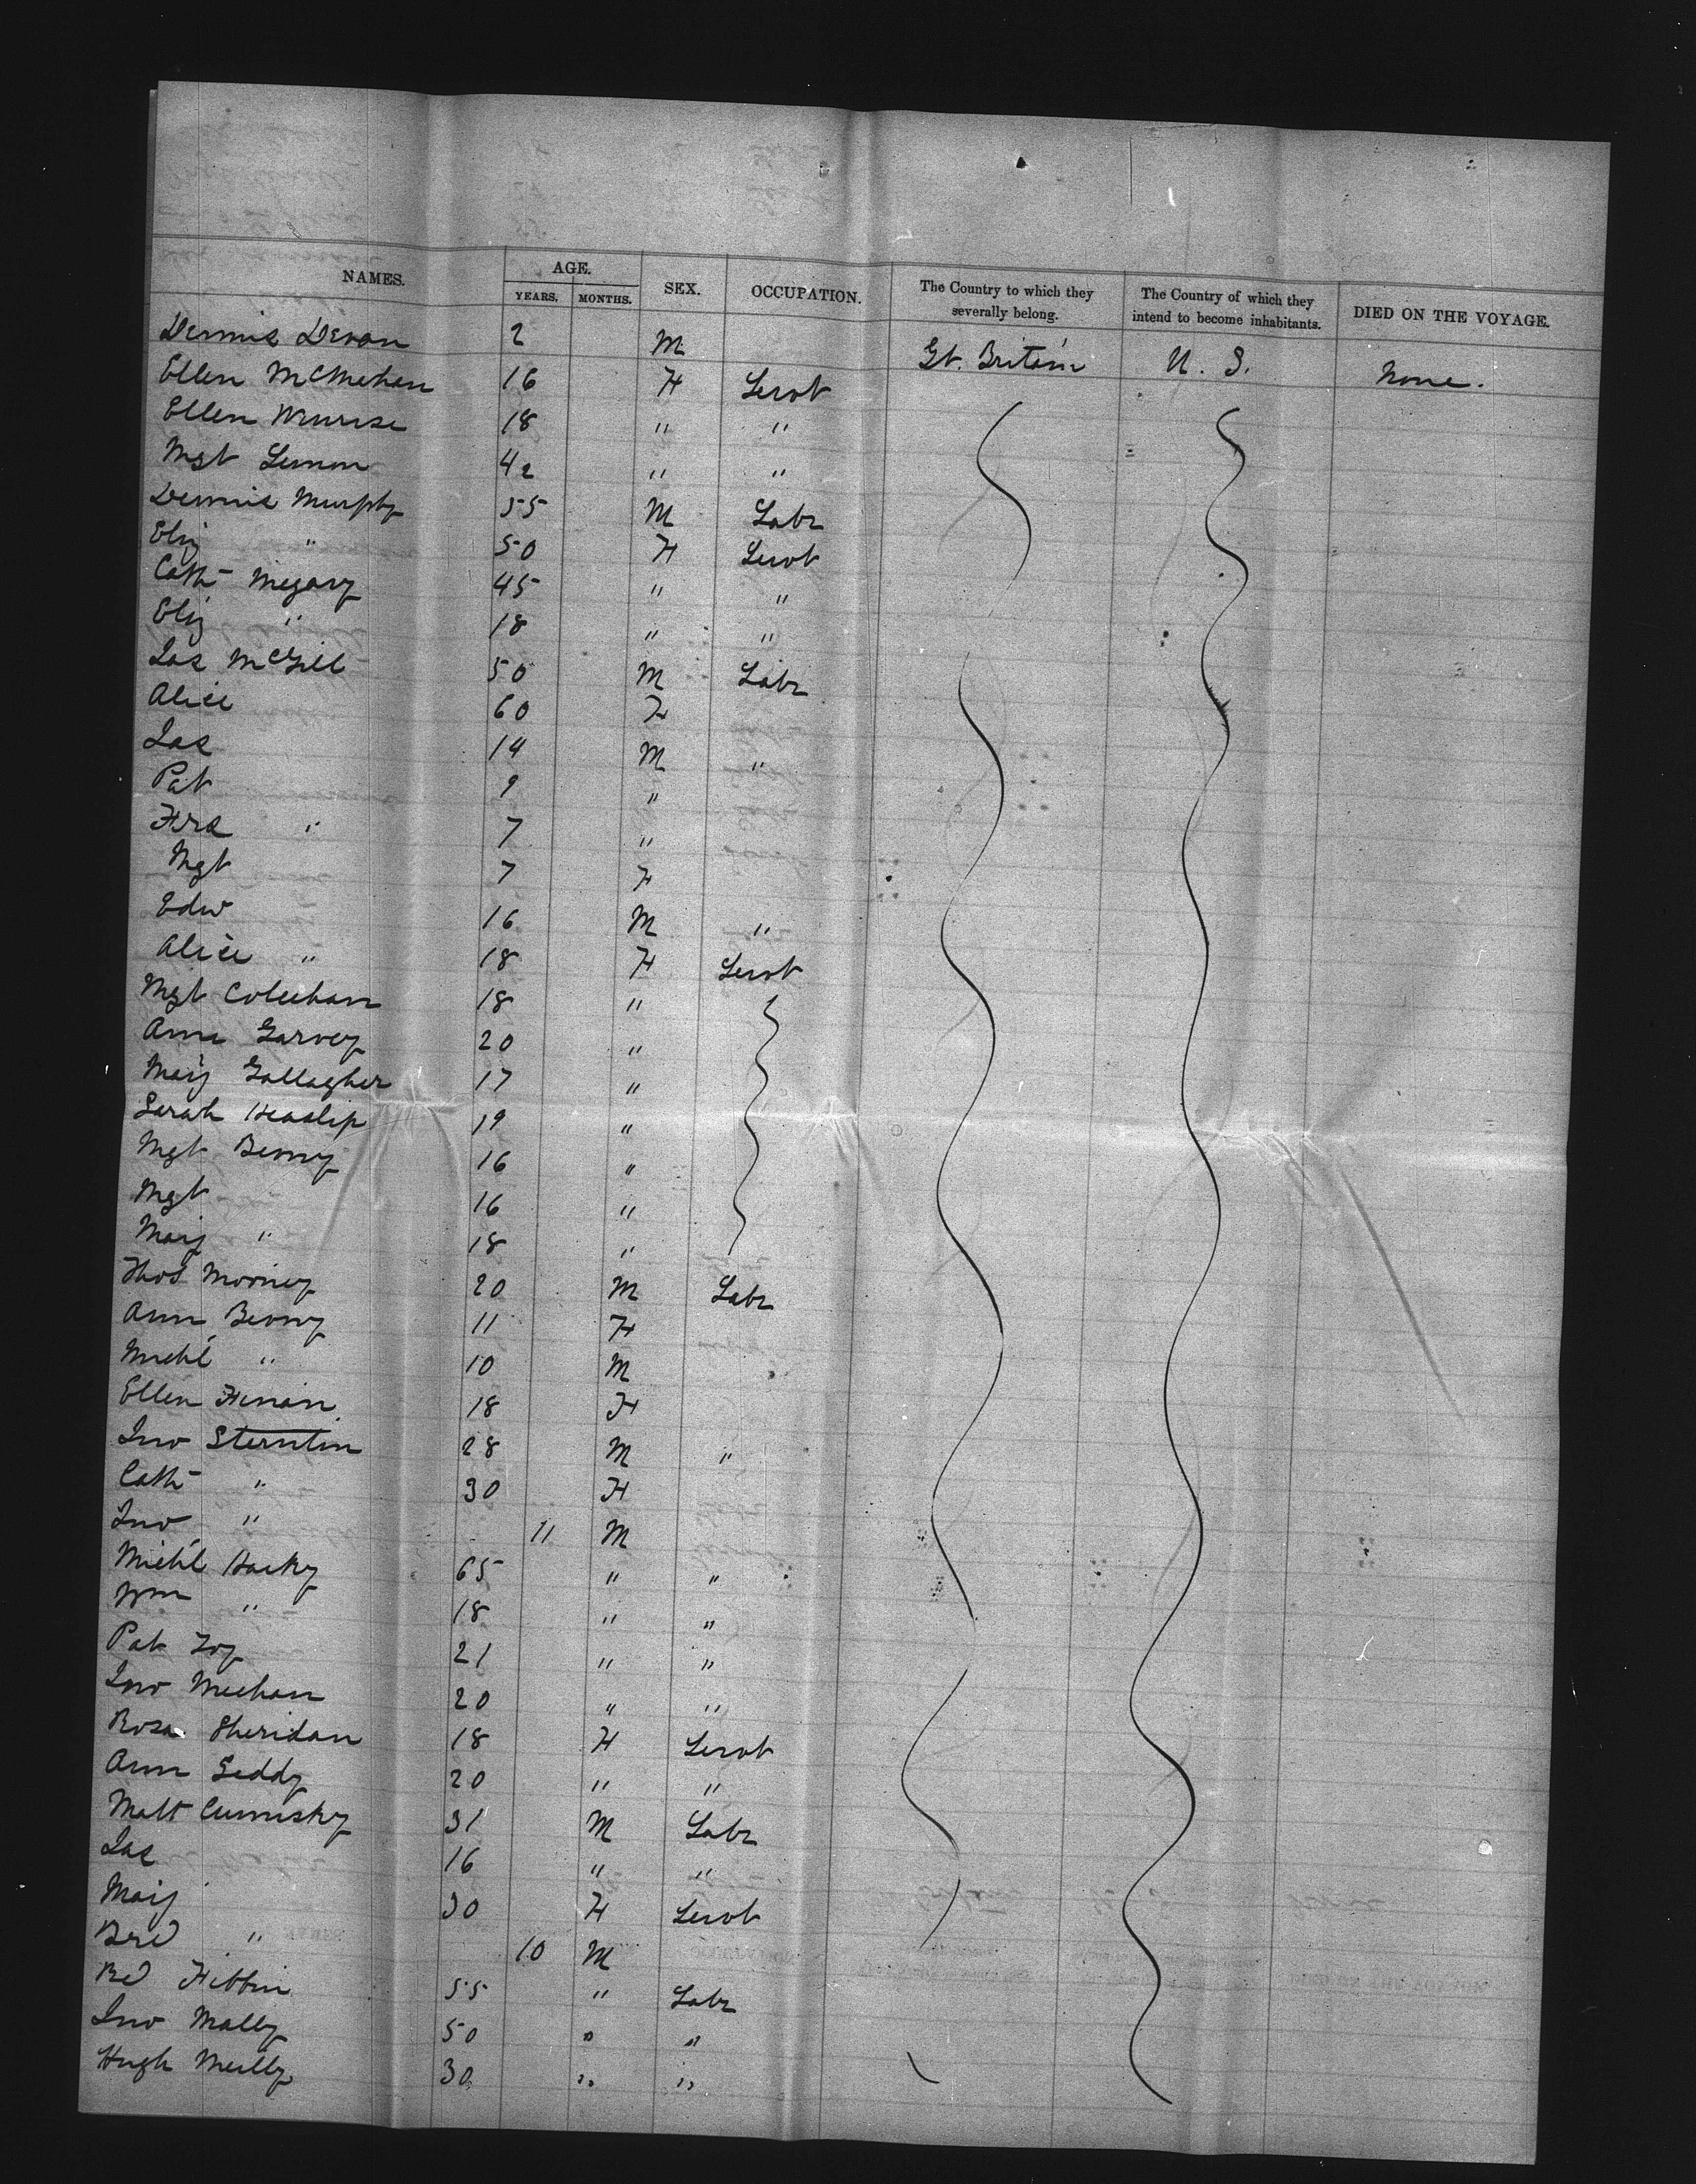 NAMES. AGE. SEX. OCCUPATION. The Country to which they severally belong. The Country of which they intend to become inhabitants. DIED ON THE VOYAGE.
YEARS. MONTHS.
Dennis Devan 2 M Gt. Britain U. S. None.
Ellen McMehan 16 F Servt
Ellen 18 " "
Mgt Lennon 42 " "
Dennis Murphy 55 M Labr
Eliz " 50 F Servt
Cath Megary 45 " "
Eliz " 18 " "
Jas McGill 50 M Labr
Alice 60 F
Jas 14 M "
Pat 9 "
Frs " 7 "
Mgt 7 F
Edw 16 M "
Alice " 18 F Servt
Mgt Coleehan 18 "
Anne Garvey 20 "
Mary Gallagher 17 "
Sarah Heaslip 19 "
Mgt Benny 16 "
Mgt 16 "
Mary " 18 "
Thos Mooney 20 M Labr
Ann Benny 11 F
Michl " 10 M
Ellen Finan 18 F
Jno Sternton 28 M "
Cath " 30 F
Jno " 11 M
Michl Hacky 65 " "
Wm " 18 " "
Pat Foy 21 " "
Jno Meehan 20 " "
Rosa Sheridan 18 F Servt
Ann Leddy 20 " "
Matt Cumisky 31 M Labr
Jas 16 " "
Mary 30 F Servt
Brd " 10 M
Bd Fibbin 55 " Labr
Jno Mally 50 " "
Hugh Meilly 30 " "